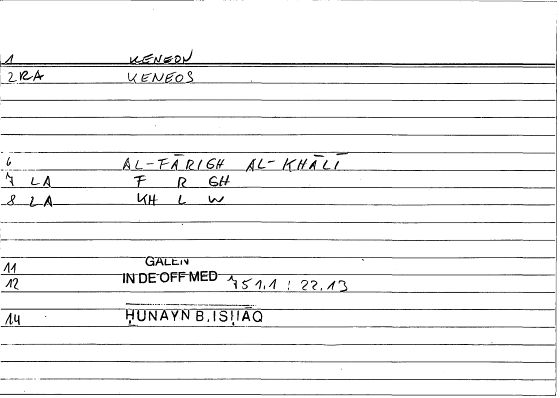 1 KENEON
2RA KENEOS
6 AL-FĀRIGH AL-KHĀLĪ
7 LA F R GH
8 LA KH L W
11 GALEN
12 IN DE OFF MED 751,1 : 22.13
14 ḤUNAYN B. ISḤĀQ